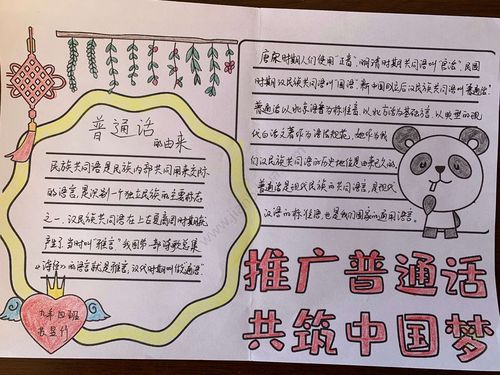 普通话
的由来
民族共同语是民族内部共同用来交际
的语言,是识别一个独立民族的主要标志
之一.汉民族共同语在上古夏商周时期就
产生了当时叫"雅言"我国第一部诗歌总集
《诗经》的语言就是雅言,汉代时期叫做"通语"
唐宋时期人们使用"正音".明清时期共同语叫"官话".民国
时期汉民族共同语叫"国语"新中国成立后汉民族共同语叫普通话"
普通话以北京语音为标准音.以北方话为基础方言,以典范的现
代白话文著作为语法规范.
们汉民族共同语的历史地位是由来已久的,
普通话是现代民族的共同语言,是现代
汉语的标准语,也是我们国家的通用语言.
推广普通话
共筑中国梦
九年四班